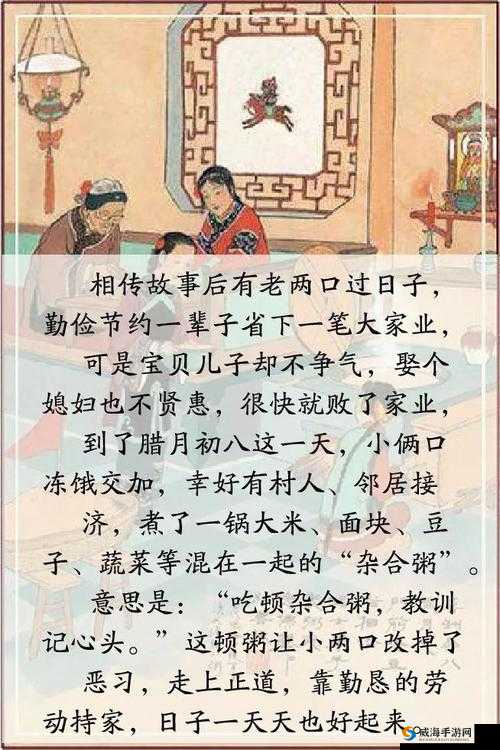 相传故事后有老两口过日子，
勤俭节约一辈子省下一笔大家业，
可是宝贝儿子却不争气，娶个
媳妇也不贤惠，很快就败了家业，
到了腊月初八这一天，小俩口
冻饿交加，幸好有村人、邻居接
济，煮了一锅大米、面块、豆
子、蔬菜等混在一起的“杂合粥”。
意思是：“吃顿杂合粥，教训
记心头。”这顿粥让小两口改掉了
恶习，走上正道，靠勤恳的劳
动持家，日子一天天也好起来
威海手游网